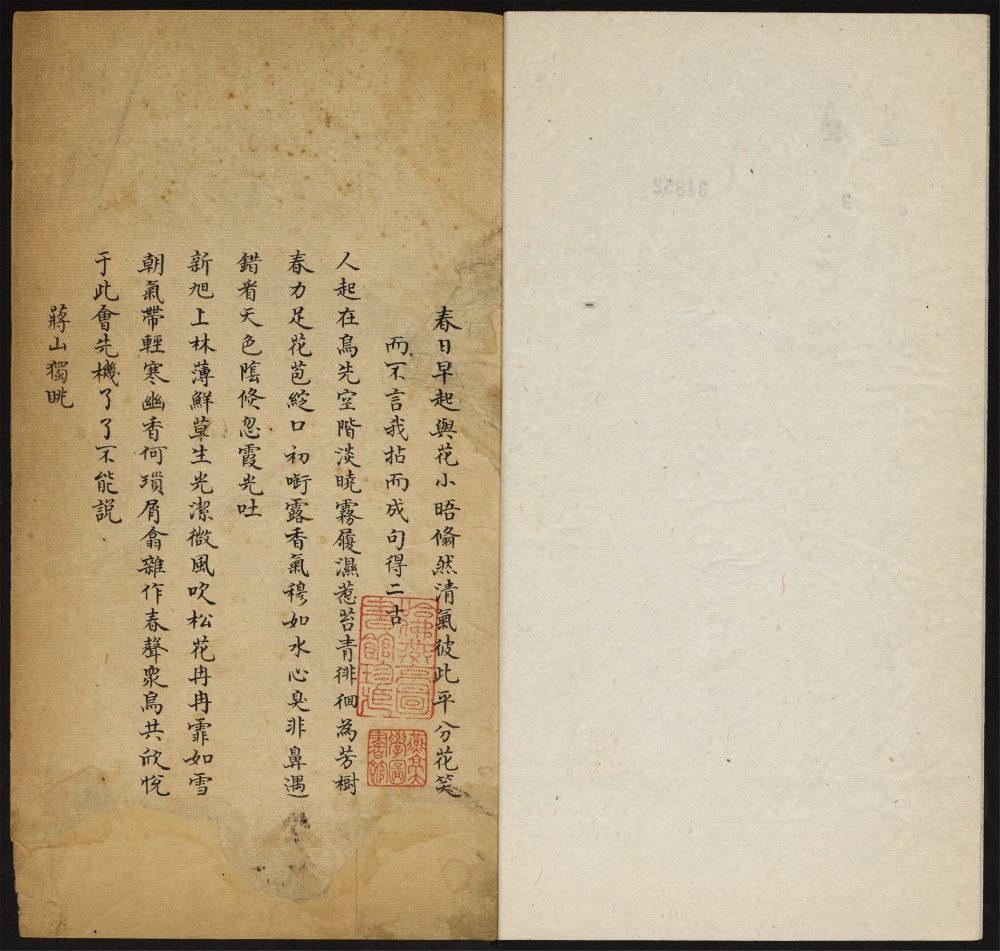 春日早起與花小晤翛然清氣彼此平分花笑
而不言我拈而成句得二古
人起在鳥先空階淡曉霧履濕惹苔青徘徊為芳樹
春力足花苞綻口初啣露香氣穆如水心臭非鼻遇
錯看天色陰倏忽霞光吐
新旭上林薄鮮草生光潔微風吹松花冉冉霏如雪
朝氣帶輕寒幽香何瑣屑翕雜作春聲衆鳥共欣悅
于此會先機了了不能說
蔣山獨眺
哈佛燕京圖
書館珍藏
燕京
學圖
書館
34852
3